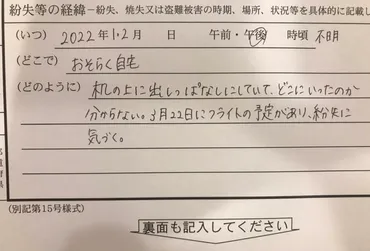 紛失等の経緯－紛失、焼失又は盗難被害の時期、場所、状況等を具体的に記載し
(いつ) 2022年1・2月 日 午前・午後 時頃 不明
(どこで) おそらく自宅
(どのように) 机の上に出しっぱなしにしていて、どこにいったのか
分からない。3月22日にフライトの予定があり、紛失に
気づく。
(別記第15号様式)
裏面も記入してください